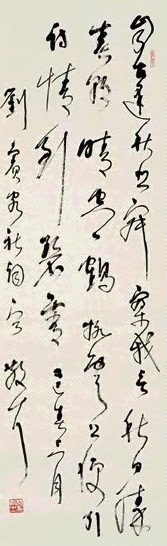 自古逢秋悲寂寥我言秋日勝
春朝晴空一鶴排雲上便引
詩情到碧霄
劉賓客秋詞